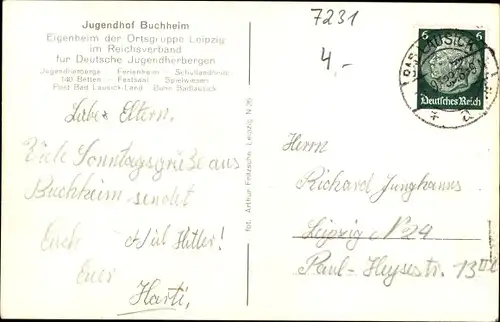 Jugendhof Buchheim
Eigenheim der Ortsgruppe Leipzig
im Reichsverband
für Deutsche Jugendherbergen
Jugendherberge Ferienheim Schullandheim
140 Betten Festsaal Spielwiesen
Post Bad Lausick-Land Bahn Badlausick
7231
4,-
6 6
Deutsches Reich
BAD LAUSICK
Liebe Eltern.
Viele Sonntagsgrüße aus
Buchheim sendet
Euch Heil Hitler!
Euer
Harti.
fot. Arthur Fritzsche, Leipzig N 26
Herrn
Richard Junghanns
Leipzig N 24
Paul-Heysestr. 13